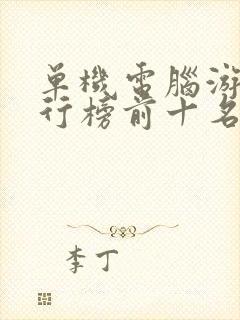 單機電腦游
行榜前十名
李丁